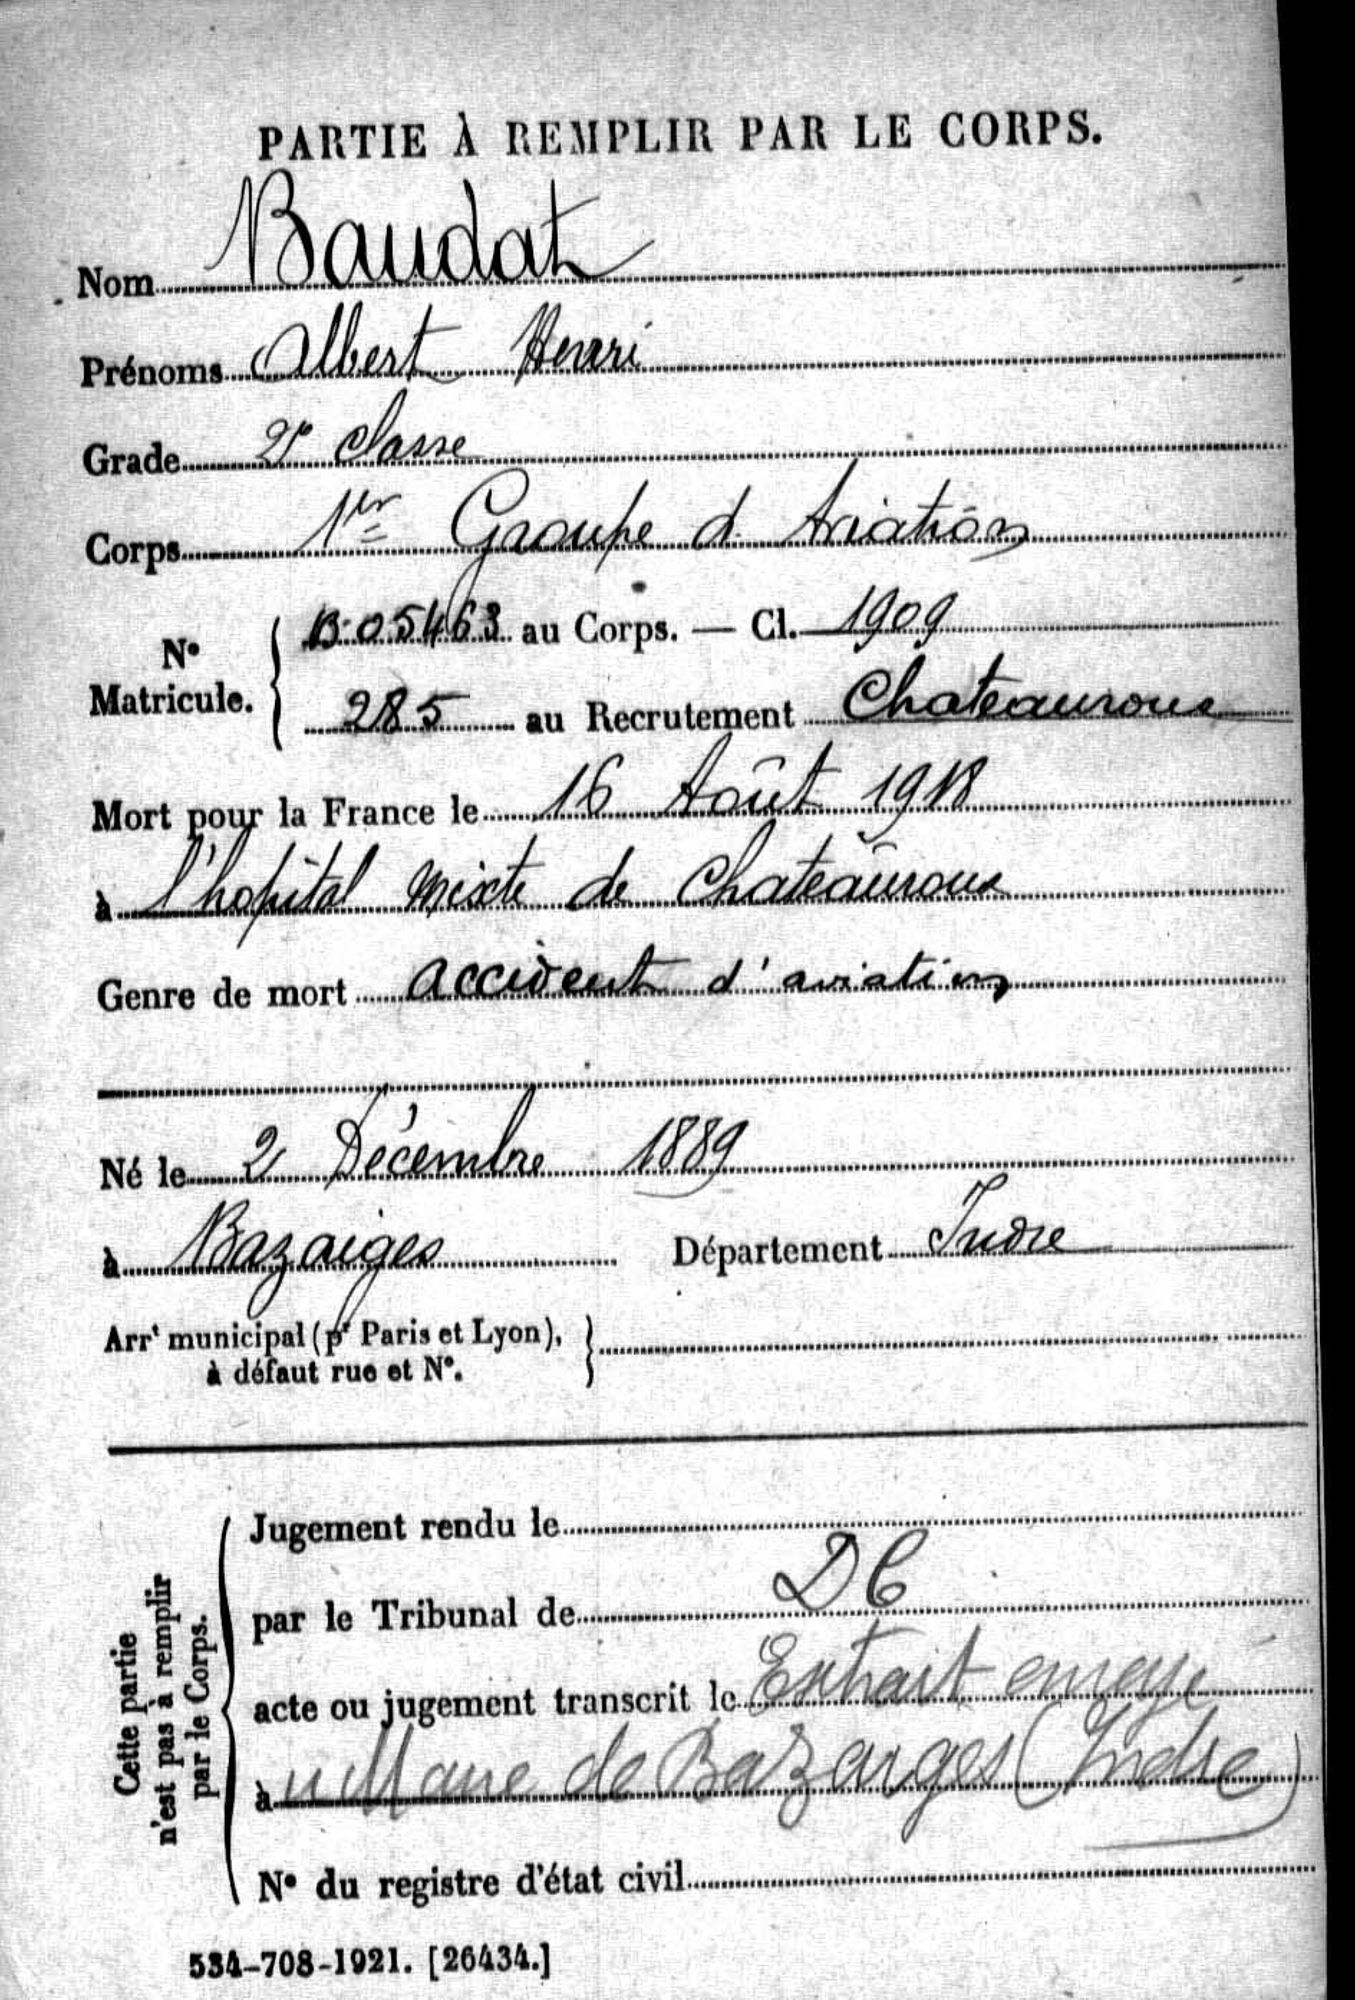 PARTIE À REMPLIR PAR LE CORPS.
Nom Baudat
Prénoms Albert Henri
Grade 2e classe
Corps 1er Groupe d. Aviation
N° Matricule.
B.05463 au Corps. — Cl. 1909
285 au Recrutement Chateauroux
Mort pour la France le 16 Août 1918
à l'hopital mixte de Chateauroux
Genre de mort accident d'aviation
Né le 2 Décembre 1889
à Bazaiges Département Indre
Arrt municipal (pr Paris et Lyon),
à défaut rue et N°.
Cette partie
n'est pas à remplir
par le Corps.
Jugement rendu le
par le Tribunal de DC
acte ou jugement transcrit le Extrait envoyé
à u Maire de Bazaiges (Indre)
N° du registre d'état civil
534-708-1921. [26434.]